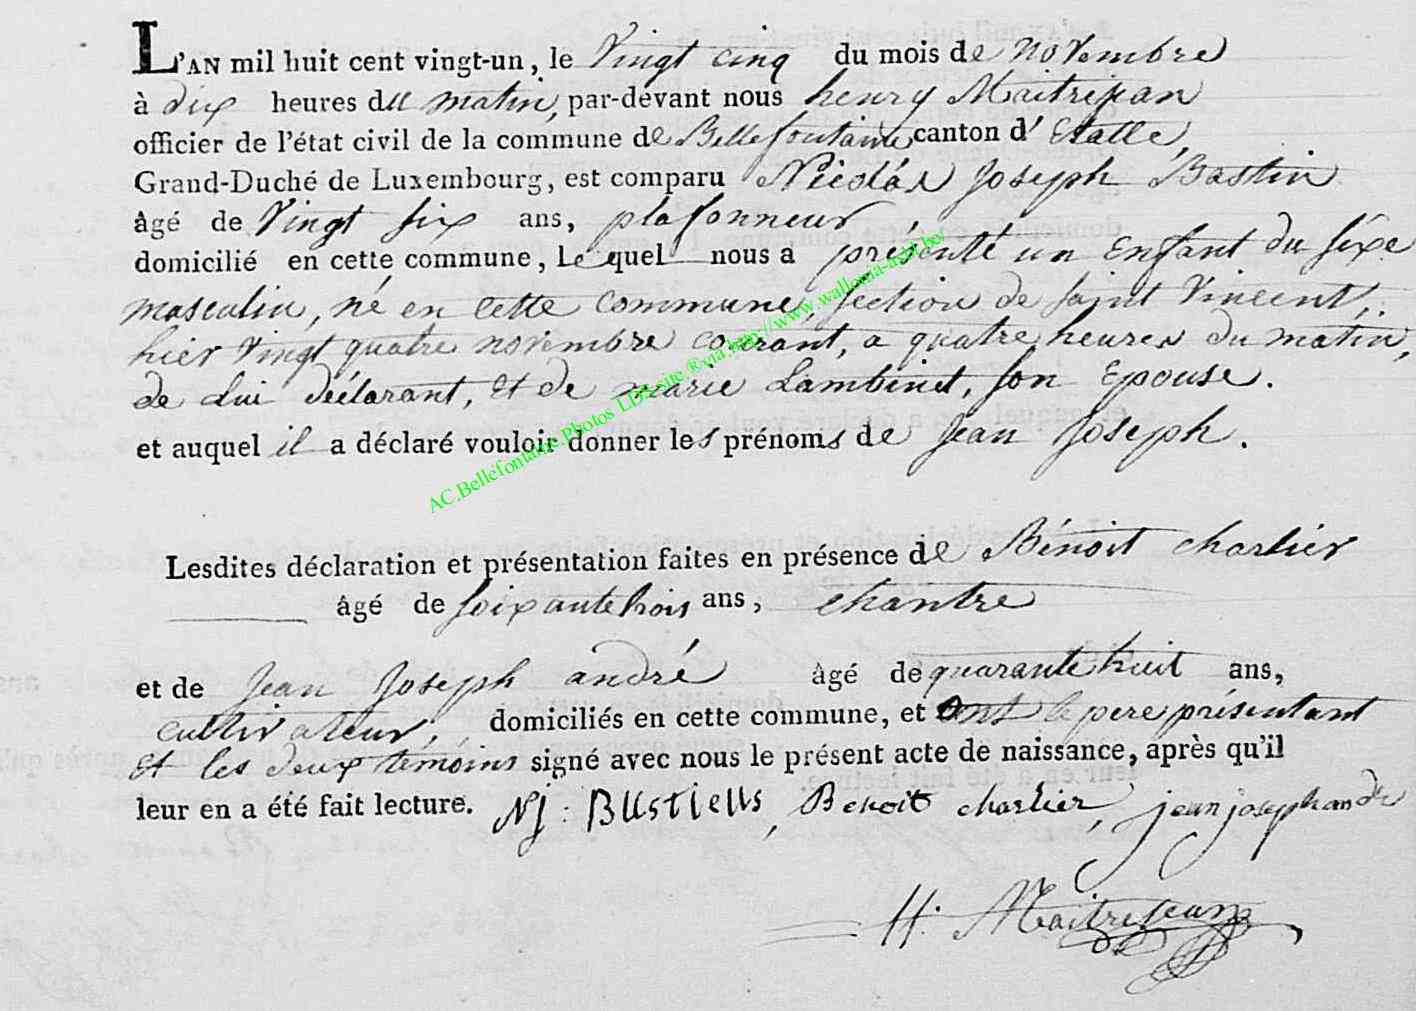 L'AN mil huit cent vingt-un, le Vingt cinq du mois de novembre
à dix heures du matin, par-devant nous henry Maitrejean
officier de l'état civil de la commune de Bellefontaine canton d' Etalle,
Grand-Duché de Luxembourg, est comparu Nicolas Joseph Bastin
âgé de Vingt six ans, plafonneur
domicilié en cette commune, Lequel nous a présenté un Enfant du sexe
masculin, né en cette commune, section de saint Vincent,
hier vingt quatre novembre courant, a quatre heures du matin,
de Lui déclarant, et de marie Lambinet, son Epouse.
et auquel il a déclaré vouloir donner les prénoms de Jean Joseph.
AC.Bellefontaine Photos LD site ® via http://www.wallonia-asbl.be/
Lesdites déclaration et présentation faites en présence de Bénoit charlier
âgé de soixante trois ans, chantre
et de Jean Joseph andré âgé de quarante huit ans,
cultivateur, domiciliés en cette commune, et ont le pere présentant
et les deux témoins signé avec nous le présent acte de naissance, après qu'il
leur en a été fait lecture. NJ: Bustiens, Benoit charlier, jean joseph andre
H: Maitrejean